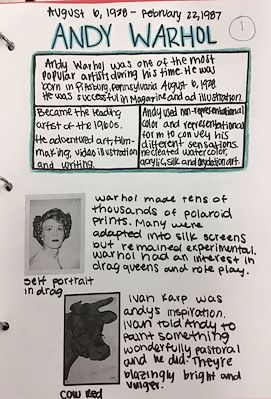 August 6, 1928 - February 22, 1987
1
ANDY WARHOL
Andy Warhol was one of the most
popular artists during his time. He was
born in Pittsburg, Pennsylvania August 6, 1928
He was successful in Magazine and ad illustration.
Became the leading
artist of the 1960s.
He adventured art, film-
making, video illustration
and writing.
Andy used non-representational
color and representational
form to convey his
different sensations.
He created watercolor,
acrylic, silk and oxydation art.
Warhol made tens of
thousands of polaroid
prints. Many were
adapted into silk screens
but remained experimental.
Warhol had an interest in
drag queens and role play.
Self portrait
in drag
Ivan Karp was
andy's inspiration.
Ivan told Andy to
paint something
wonderfully pastoral
and he did. They're
blazingly bright and
vulger.
Cow Red